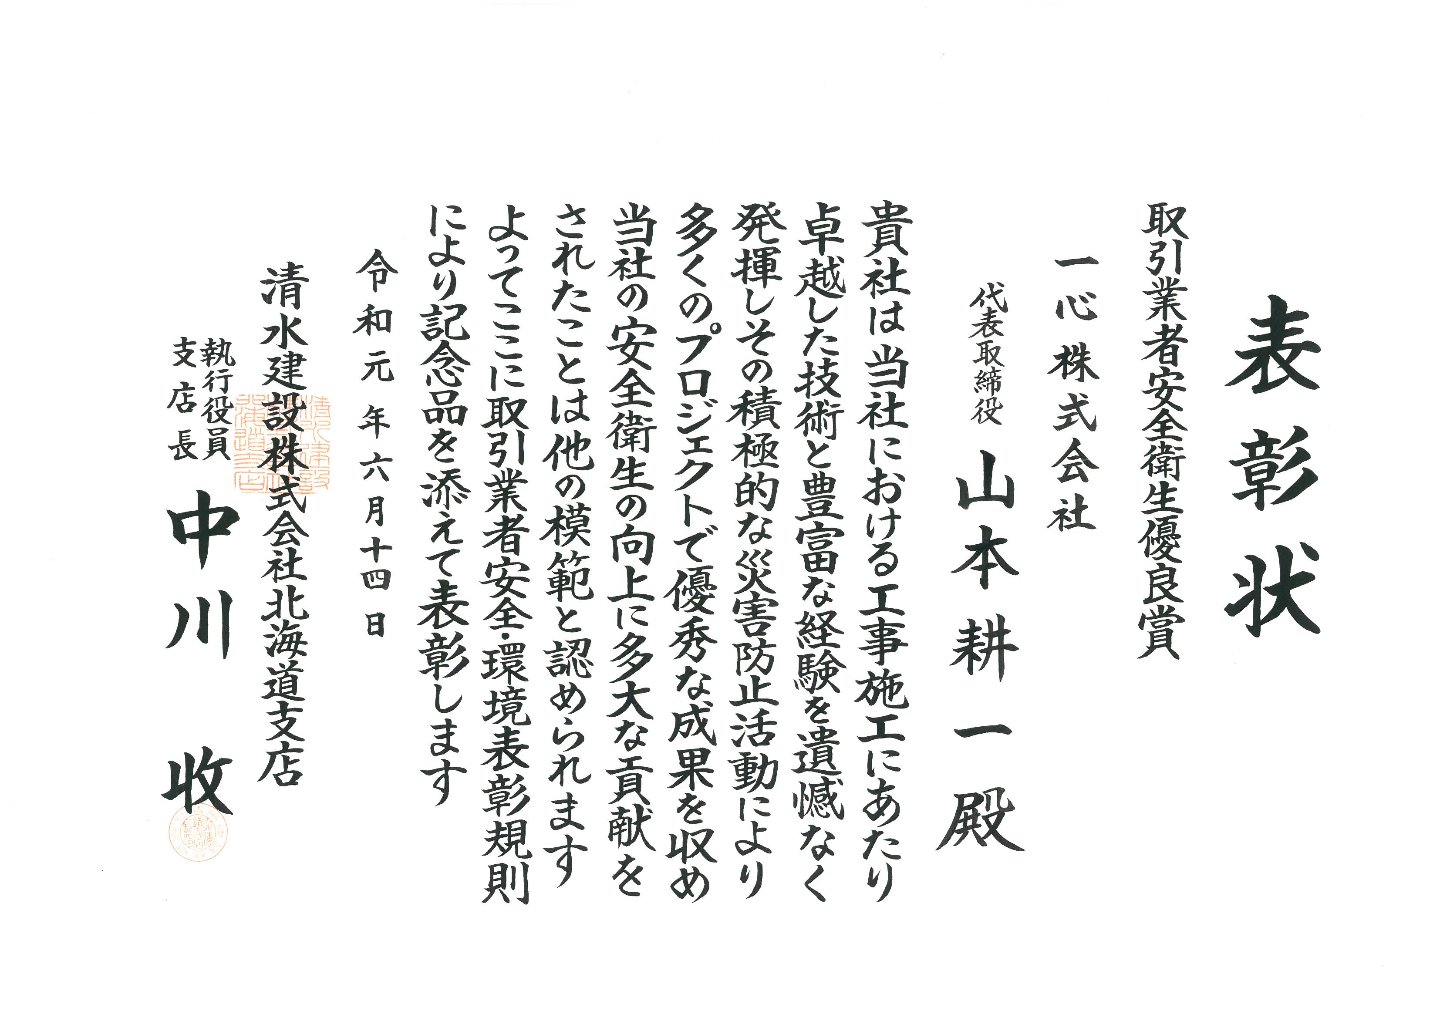 表彰状
取引業者安全衛生優良賞
一心株式会社
代表取締役 山本耕一殿
貴社は当社における工事施工にあたり
卓越した技術と豊富な経験を遺憾なく
発揮しその積極的な災害防止活動により
多くのプロジェクトで優秀な成果を収め
当社の安全衛生の向上に多大な貢献を
されたことは他の模範と認められます
よってここに取引業者安全・環境表彰規則
により記念品を添えて表彰します
令和元年六月十四日
清水建設株式会社北海道支店
執行役員
支店長 中川 收